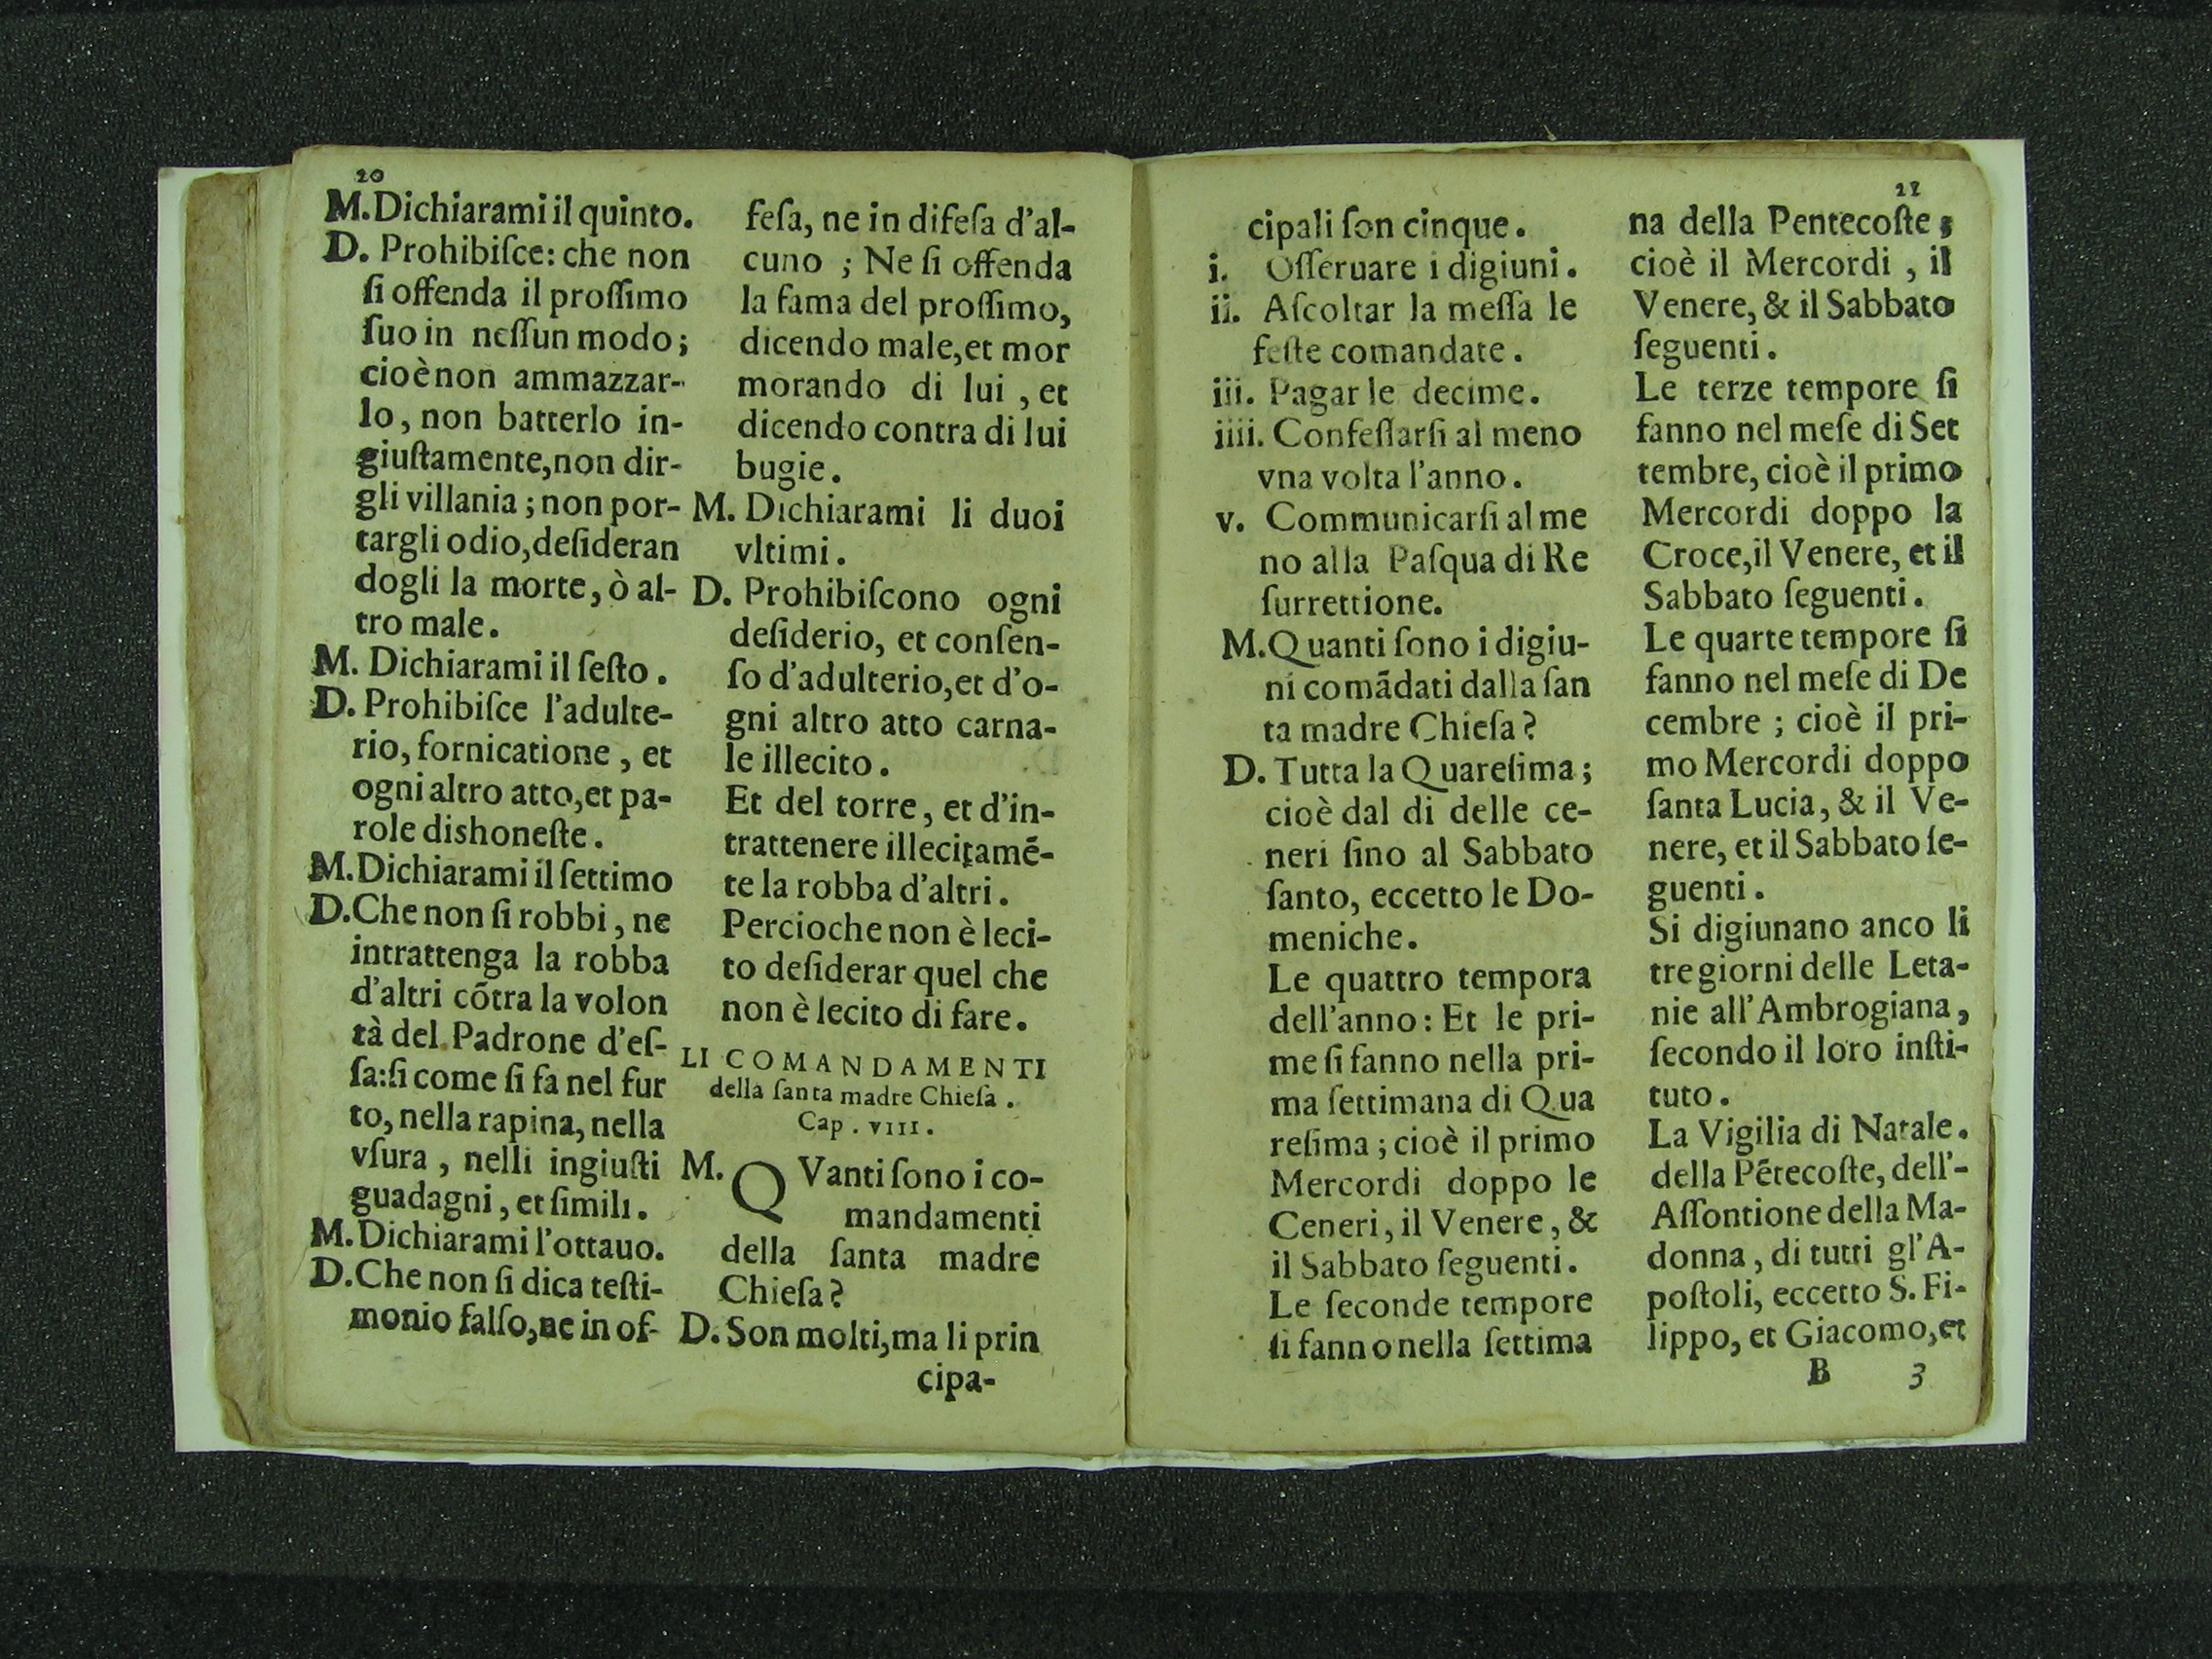 20
M. Dichiarami il quinto.
D. Prohibiſce: che non
ſi offenda il proſſimo
ſuo in neſſun modo;
cioè non ammazzar-
lo, non batterlo in-
giuſtamente, non dir-
gli villania; non por-
targli odio, deſideran
dogli la morte, ò al-
tro male.
M. Dichiarami il ſeſto.
D. Prohibiſce l'adulte-
rio, fornicatione, et
ogni altro atto, et pa-
role dishoneſte.
M. Dichiarami il ſettimo
D. Che non ſi robbi, ne
intrattenga la robba
d'altri cõtra la volon
tà del Padrone d'eſ-
ſa: ſi come ſi fa nel fur
to, nella rapina, nella
vſura, nelli ingiuſti
guadagni, et ſimili.
M. Dichiarami l'ottauo.
D. Che non ſi dica teſti-
monio falſo, ne in of-
feſa, ne in difeſa d'al-
cuno; Ne ſi offenda
la fama del proſſimo,
dicendo male, et mor
morando di lui, et
dicendo contra di lui
bugie.
M. Dichiarami li duoi
vltimi.
D. Prohibiſcono ogni
deſiderio, et conſen-
ſo d'adulterio, et d'o-
gni altro atto carna-
le illecito.
Et del torre, et d'in-
trattenere illecitamẽ-
te la robba d'altri.
Percioche non è leci-
to deſiderar quel che
non è lecito di fare.
LI COMANDAMENTI
della ſanta madre Chieſa.
Cap. VIII.
M. QVanti ſono i co-
mandamenti
della ſanta madre
Chieſa?
D. Son molti, ma li prin
cipa-
21
cipali ſon cinque.
i. Oſſeruare i digiuni.
ii. Aſcoltar la meſſa le
feſte comandate.
iii. Pagar le decime.
iiii. Confeſſarſi al meno
vna volta l'anno.
v. Communicarſi al me
no alla Paſqua di Re
ſurrettione.
M. Quanti ſono i digiu-
ni comãdati dalla ſan
ta madre Chieſa?
D. Tutta la Quareſima;
cioè dal di delle ce-
neri ſino al Sabbato
ſanto, eccetto le Do-
meniche.
Le quattro tempora
dell'anno: Et le pri-
me ſi fanno nella pri-
ma ſettimana di Qua
reſima; cioè il primo
Mercordi doppo le
Ceneri, il Venere, &
il Sabbato ſeguenti.
Le ſeconde tempore
ſi fanno nella ſettima
na della Pentecoſte;
cioè il Mercordi, il
Venere, & il Sabbato
ſeguenti.
Le terze tempore ſi
fanno nel meſe di Set
tembre, cioè il primo
Mercordi doppo la
Croce, il Venere, et il
Sabbato ſeguenti.
Le quarte tempore ſi
fanno nel meſe di De
cembre; cioè il pri-
mo Mercordi doppo
ſanta Lucia, & il Ve-
nere, et il Sabbato ſe-
guenti.
Si digiunano anco li
tre giorni delle Leta-
nie all'Ambrogiana,
ſecondo il loro inſti-
tuto.
La Vigilia di Natale.
della Pẽtecoſte, dell'-
Aſſontione della Ma-
donna, di tutti gl'A-
poſtoli, eccetto S. Fi-
lippo, et Giacomo, et
B 3